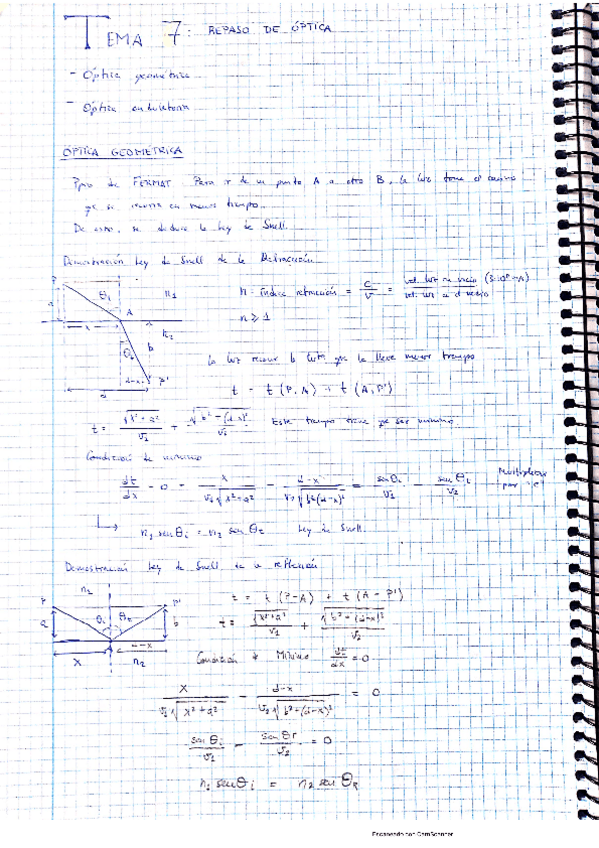 TEMA 7: REPASO DE ÓPTICA
- Óptica geométrica
- Óptica ondulatoria
ÓPTICA GEOMÉTRICA
Ppio de FERMAT. Para ir de un punto A a otro B, la luz toma el camino
qe se recorra en menos tiempo.
De esto, se deduce la ley de Snell.
Demostración Ley de Snell de la Refracción
P
θi
n1
a
A
x
n2
θt
b
d-x
P'
d
n = índice refracción = c/v = vel. luz en vacío (3·10⁸ m/s) / vel. luz en el medio
n ≥ 1
la luz recorre la que le lleve menor tiempo
t = t (P, A) + t (A, P')
t = √(x²+a²)/v1 + √(b²-(d-x)²)/v2 Este tiempo tiene qe ser mínimo
Condición de mínimo
dt/dx = 0 = x/(v1√(x²+a²)) - (d-x)/(v2√(b²(d-x)²)) = sen θi/v1 - sen θt/v2 Multiplicar por "c"
n1 sen θi = n2 sen θt Ley de Snell
Demostración Ley de Snell de la reflexión
n1
P
P'
a
θi
θR
b
d-x
x
n2
t = t (P-A) + t (A-P')
t = √(x²+a²)/v1 + √(b²-(d-x)²)/v2
Condición de Mínimo dt/dx = 0
x/(v1√(x²+a²)) - (d-x)/(v2√(b²+(d-x)²)) = 0
sen θi/v1 - sen θr/v2 = 0
n1 sen θi = n2 sen θR
Escaneado con CamScanner